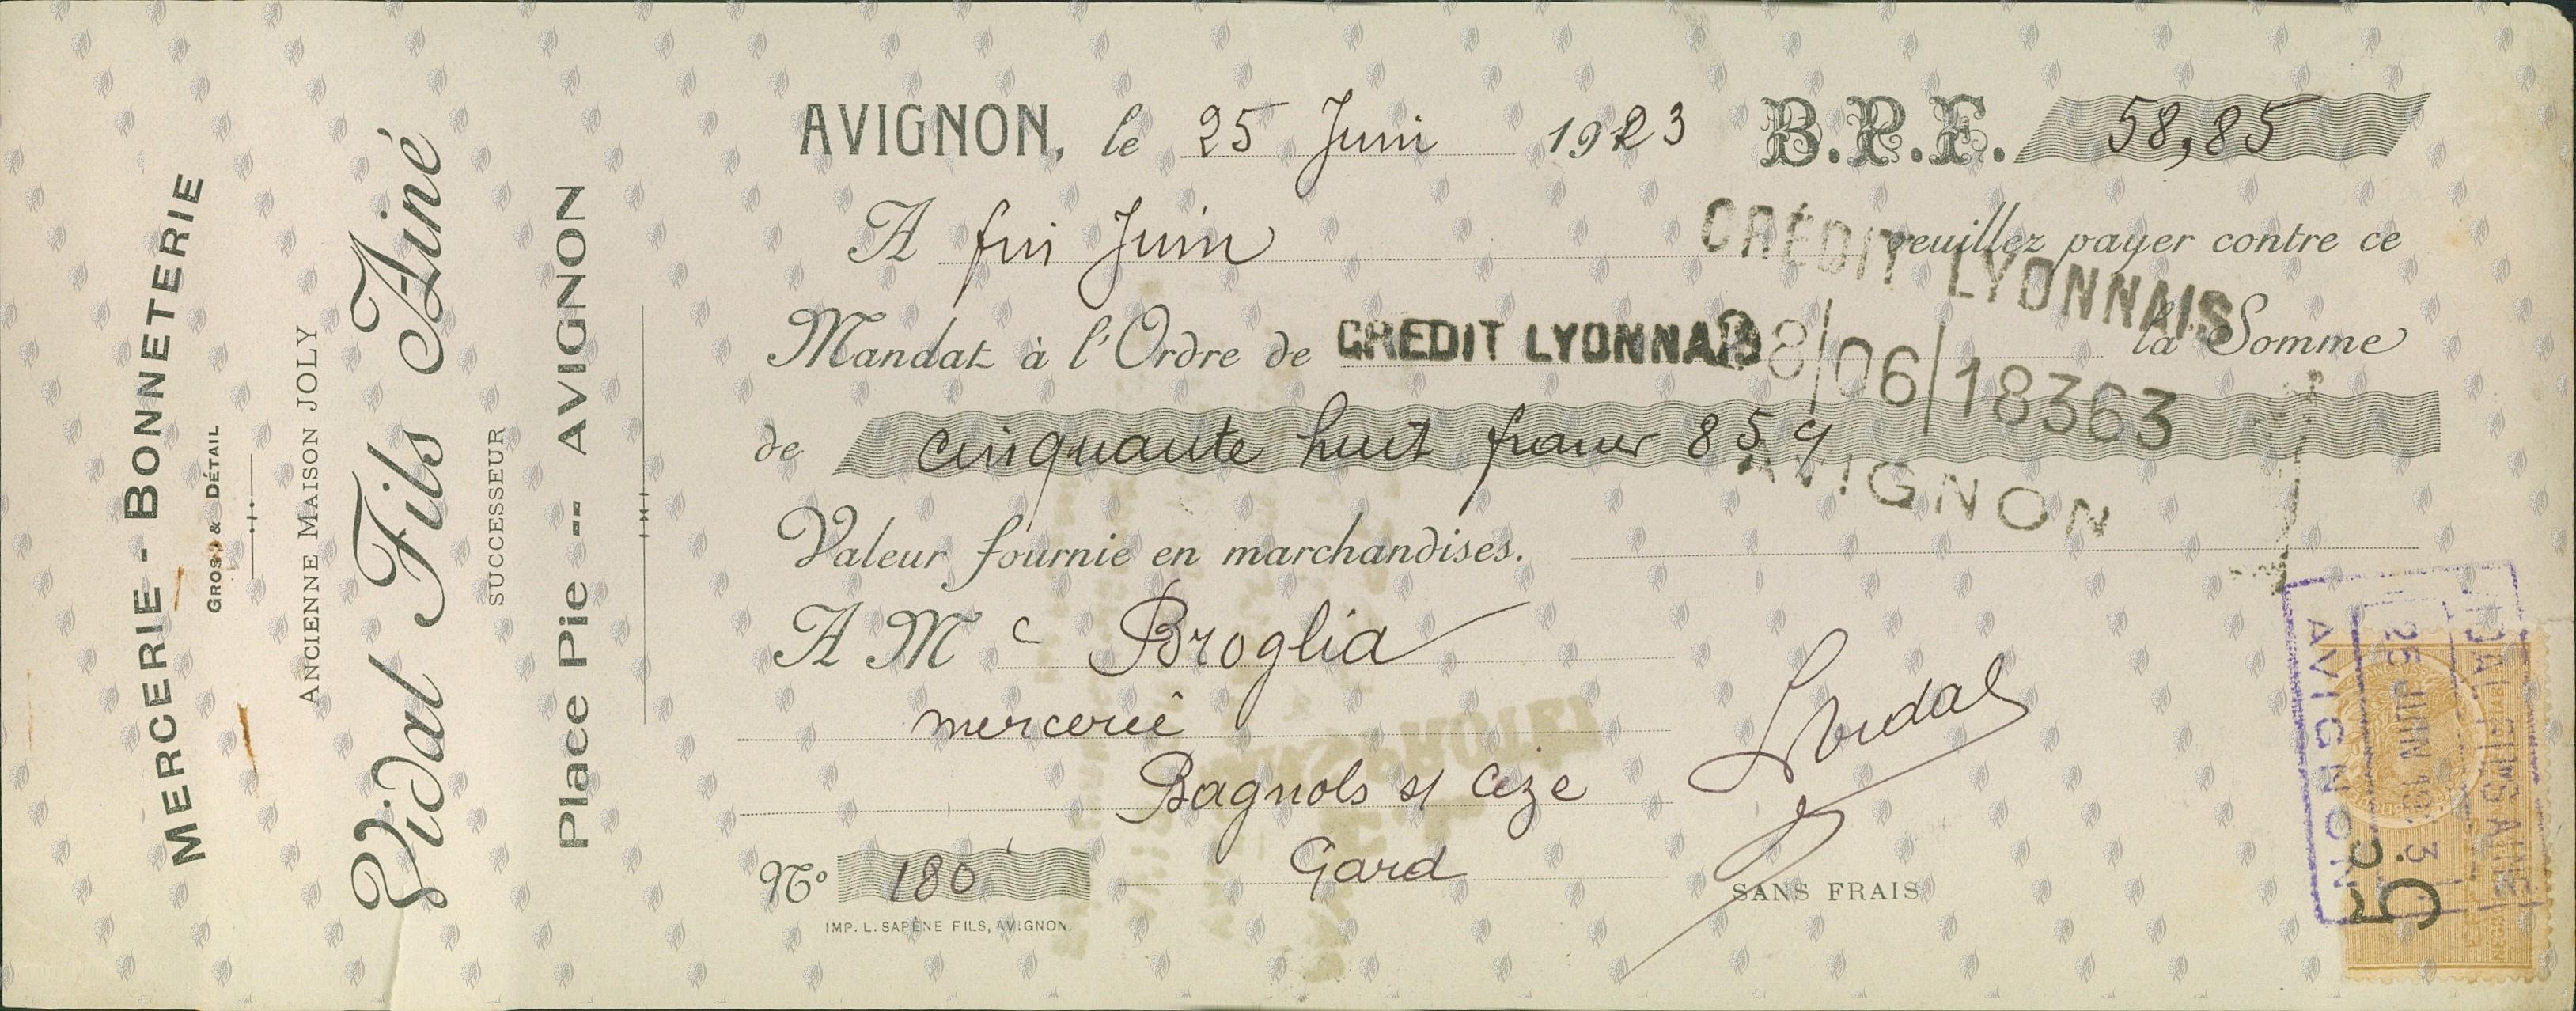 MERCERIE - BONNETERIE
GROS & DÉTAIL
ANCIENNE MAISON JOLY
Vidal Fils Aîné
SUCCESSEUR
Place Pie -- AVIGNON
AVIGNON, le 25 Juin 1923 B.P.F. 58,85
A fin Juin veuillez payer contre ce
CRÉDIT LYONNAIS
Mandat à l'Ordre de CREDIT LYONNAIS la Somme
28/06/18363
de cinquante huit francs 85 c/
AVIGNON
Valeur fournie en marchandises.
A M c Broglia
mercerie
Bagnols s/ Cèze
Gard
Nº 180
SANS FRAIS
IMP. L. SAPÈNE FILS, AVIGNON.
Vidal
VIDAL FILS AINÉ
26 JUIN 1923
AVIGNON
5c